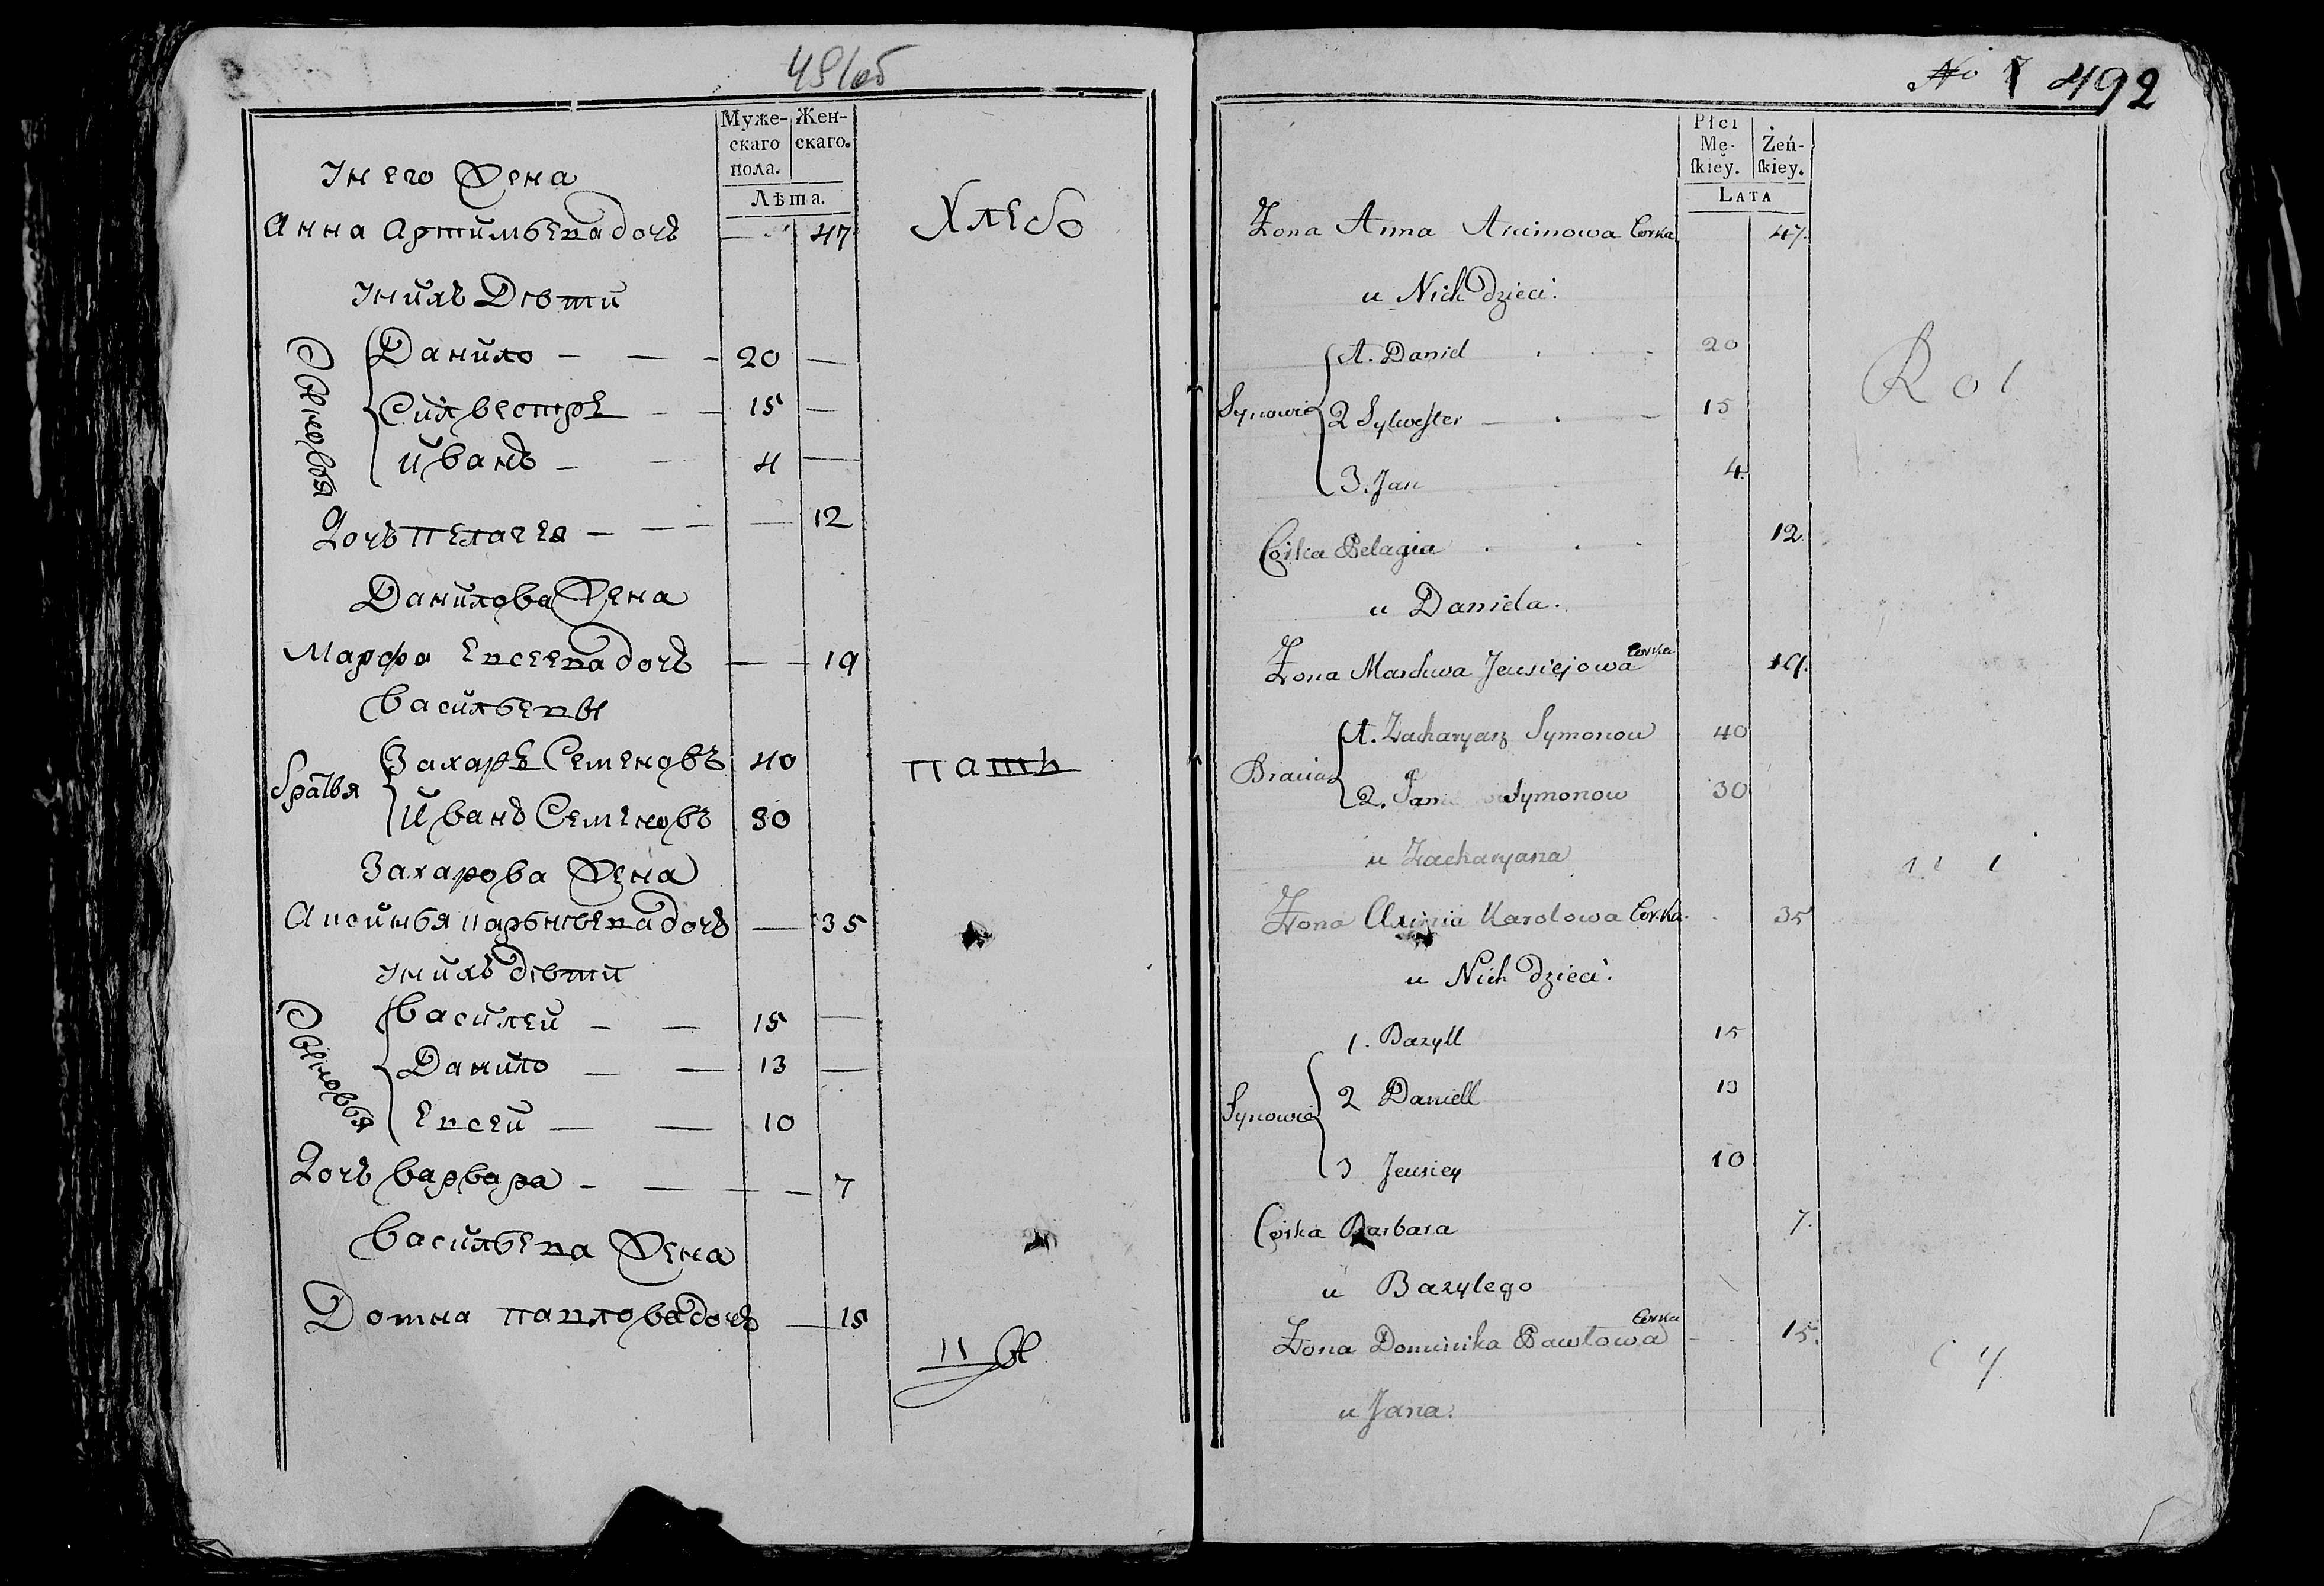 491об
Муже- Жен-
скаго скаго.
пола.
Лѣта.
Інего Жена
Анна Артимьева дочь — 47
Хлебо
Інихъ Дѣти
Сыновья
Данило — — — 20 —
Силвестръ — — 15 —
Иванъ — — 4 —
Дочь Пелагея — — — — 12
Данилова Жена
Марфа Евсеева дочь — — 19
Васильевы
братья
Захаръ Семеновъ 40
Иванъ Семеновъ 30
пашъ
Захарова Жена
Аксинья дочь — 35
Інихъ дѣти
Сыновья
Василей — — 15 —
Данило — — 13 —
Евсей — — 10
Дочь Варвара — — — — 7
Васильева Жена
Домна Павлова дочь — 15
№ 492
Płci
Mę- Żeń-
ſkiey. ſkiey.
LATA
Żona Anna Corka 47.
u Nich dzieci:
Synowie
1. Daniel 20
2 Sylwester 15
3. Jan 4.
Córka Pelagia 12.
u Daniela.
Żona Jewsiejowa Corka 19.
Bracia
1. Zacharyasz Symonow 40
2. Symonow 30
u Zacharyasza
Żona Karolowa Corka. 35
u Nich dzieci:
Synowie
1. Bazyll 15
2 Daniell 13
3 Jewsiey 10
Córka Barbara 7.
u Bazylego
Żona Dominika Pawłowa Corka 15.
u Jana.
Rol